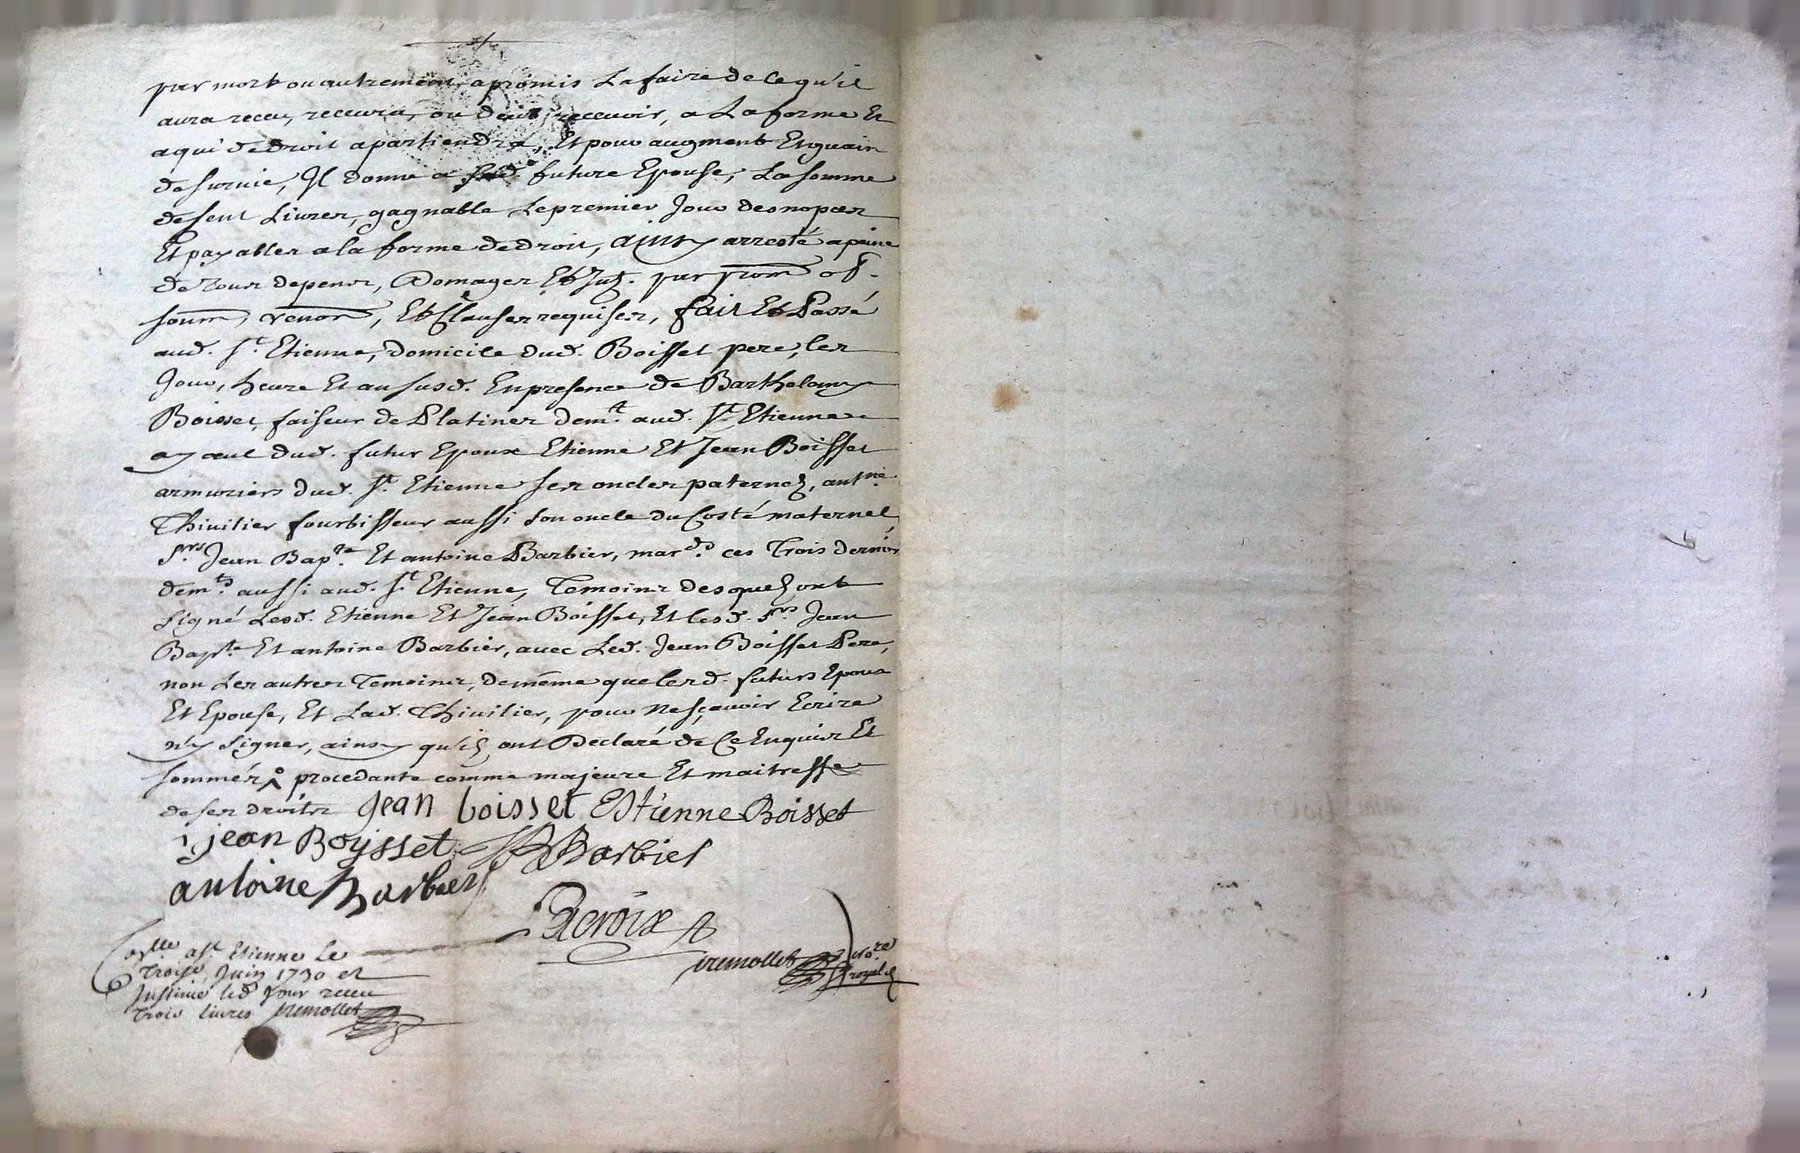 par mort ou autrement, a promis La faire de ce qu'il
aura receu, recevra, ou deub recevoir, a La forme Et
a qui de Droit apartiendra, Et pour augment Et guain
de survie, Il donne a sad. future Epouse, La somme
de sent Livres, gagnable Le premier Jour des nopces
Et payables a la forme de droit, ainsy arresté a peine
de tous depens, Domages Et Jnt. par prom. ob.
soum. renon. Et Clauses requises, fait Et Passé
aud. St. Etienne, Domicile dud. Boisset pere, les
Jour, heure Et an susd. En presence de Barthelemy
Boisset, faiseur de Platines demt. aud. St. Etienne
ayaul dud. futur Epoux Etienne Et Jean Boisset
armuriers dud. St. Etienne ses oncles paternels, antne.
Thivilier fourbisseur aussi son oncle du Costé maternel,
Srs. Jean Bapte. Et antoine Barbier, mards. ces Trois derniers
demts. aussi aud. St. Etienne, Temoins desquels ont
signé Lesd. Etienne Et Jean Boisset, Et lesd. Srs. Jean
Bapte. Et antoine Barbier, avec Led. Jean Boisset Pere,
non Les autres Temoins, de même que lesd. futurs Epoux
Et Epouse, Et Lad. Thivilier, pour ne sçavoir Ecrire
n'y signer, ainsy qu'ils ont Declaré de Ce Enquis Et
sommés procedante comme majeure Et maitresse
de ses droits Jean boisset Estienne Boisset
jean Boysset Barbier
antoine Barbier
Lacroix
tremollet no.re royal
Con.lle a St. Etienne Le
Troise Juin 1730 et
Insinué led. Jour receu
Trois livres tremollet